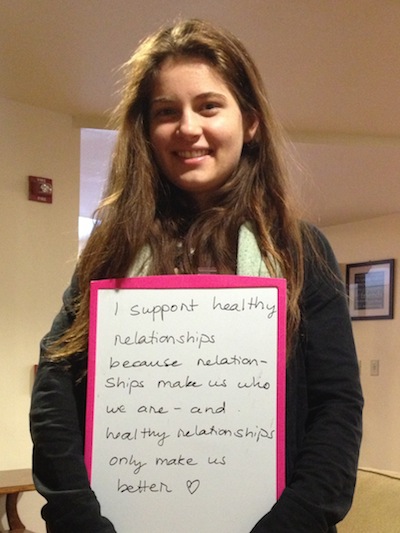 I support healthy
relationships
because relation-
ships make us who
we are - and
healthy relationships
only make us
better ♡